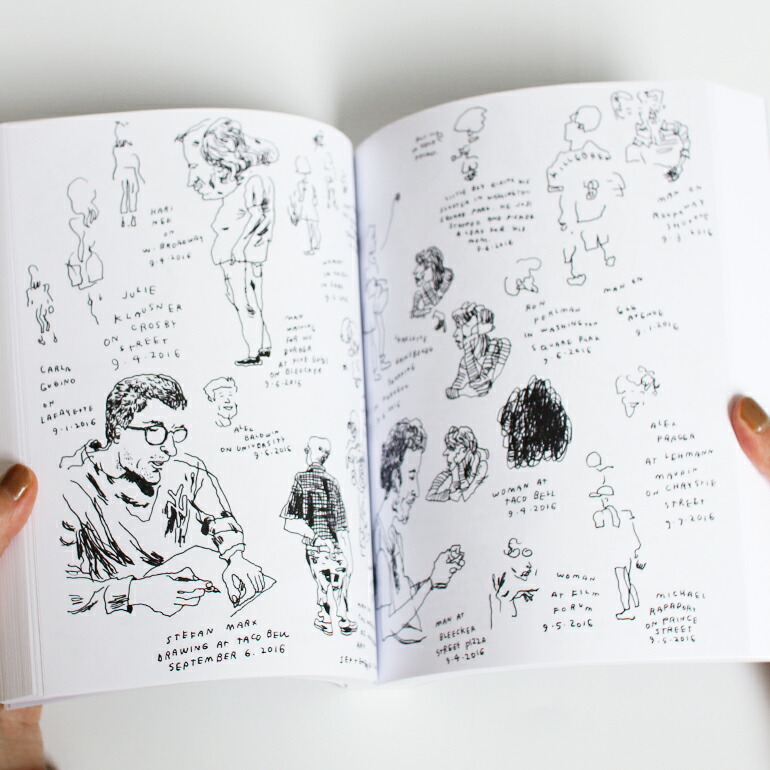 HARI
NEF
ON
W. BROADWAY
9.4.2016
JULIE
KLAUSNER
ON CROSBY
STREET
9.4.2016
CARLA
GUGINO
ON
LAFAYETTE
9.1.2016
MAN
WAITING
FOR HIS
BURGER
AT FIVE GUYS
ON BLEECKER
9.6.2016
ALEC
BALDWIN
ON UNIVERSITY
9.6.2016
STEFAN MARX
DRAWING AT TACO BELL
SEPTEMBER 6. 2016
LITTLE BOY RIDING HIS
SCOOTER IN WASHINGTON
SQUARE PARK. HE JUST
STOPPED AND PICKED
A LEAF FOR HIS
MOM.
9.6.2016
KILLGORE
8
MAN ON
BROADWAY
RON
PERLMAN
IN WASHINGTON
SQUARE PARK
9.6.2016
MAN ON
6TH
AVENUE
9.1.2016
WOMAN AT
TACO BELL
9.4.2016
ALEX
PRAGER
AT LEHMANN
MAUPIN
ON CHRYSTIE
STREET
9.7.2016
MAN AT
BLEECKER
STREET PIZZA
9.4.2016
WOMAN
AT FILM
FORUM
9.5.2016
MICHAEL
RAPAPORT
ON PRINCE
STREET
9.5.2016